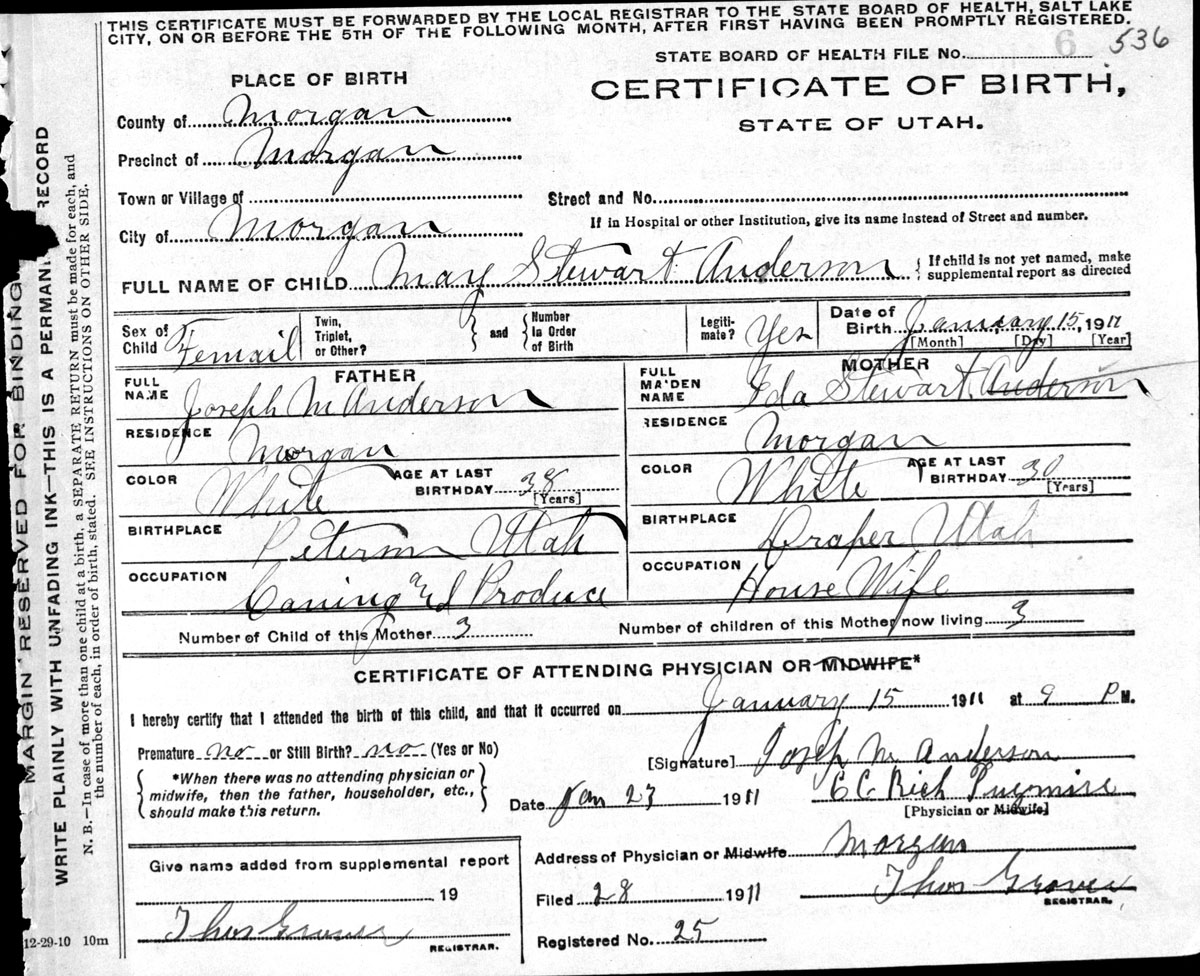 THIS CERTIFICATE MUST BE FORWARDED BY THE LOCAL REGISTRAR TO THE STATE BOARD OF HEALTH, SALT LAKE
CITY, ON OR BEFORE THE 5TH OF THE FOLLOWING MONTH, AFTER FIRST HAVING BEEN PROMPTLY REGISTERED.
6 536
STATE BOARD OF HEALTH FILE No.
PLACE OF BIRTH
CERTIFICATE OF BIRTH,
STATE OF UTAH.
County of Morgan
Precinct of Morgan
Town or Village of
Street and No.
If in Hospital or other Institution, give its name instead of Street and number.
City of Morgan
FULL NAME OF CHILD May Stewart Anderson
If child is not yet named, make
supplemental report as directed
Sex of Child Femail
Twin, Triplet, or Other?
and
Number in Order of Birth
Legiti-mate? Yes
Date of Birth January 15, 1911
[Month] [Day] [Year]
FATHER
MOTHER
FULL NAME Joseph M Anderson
FULL MAIDEN NAME Ida Stewart Anderson
RESIDENCE Morgan
RESIDENCE Morgan
COLOR White
AGE AT LAST BIRTHDAY 38
[Years]
COLOR White
AGE AT LAST BIRTHDAY 30
[Years]
BIRTHPLACE Peterson Utah
BIRTHPLACE Draper Utah
OCCUPATION Caning and Produce
OCCUPATION House Wife
Number of Child of this Mother 3
Number of children of this Mother now living 3
CERTIFICATE OF ATTENDING PHYSICIAN OR MIDWIFE*
I hereby certify that I attended the birth of this child, and that it occurred on January 15 1911 at 9 P M.
Premature no or Still Birth? no (Yes or No)
[Signature] Joseph M Anderson
*When there was no attending physician or
midwife, then the father, householder, etc.,
should make this return.
Date Jan 23 1911
C C Rich
[Physician or Midwife]
Give name added from supplemental report
19
Thos Grover
REGISTRAR.
Address of Physician or Midwife Morgan
Filed 28 1911
Thos Grover
REGISTRAR.
Registered No. 25
12-29-10 10m
MARGIN RESERVED FOR BINDING
WRITE PLAINLY WITH UNFADING INK—THIS IS A PERMANENT RECORD
N. B.—In case of more than one child at a birth, a SEPARATE RETURN must be made for each, and
the number of each, in order of birth, stated. SEE INSTRUCTIONS ON OTHER SIDE.